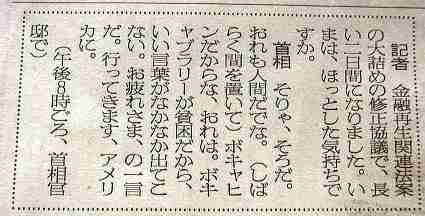 記者　金融再生関連法案
の大詰めの修正協議で、長
い二日間になりました。い
まは、ほっとした気持ちで
すか。
首相　そりゃ、そうだ。
おれも人間だでな。（しば
らく間を置いて）ボキャヒ
ンだからな、おれは。ボキ
ャブラリーが貧困だから、
いい言葉がなかなか出てこ
ない。お疲れさま、の一言
だ。行ってきます、アメリ
カに。
（午後８時ごろ、首相官
邸で）